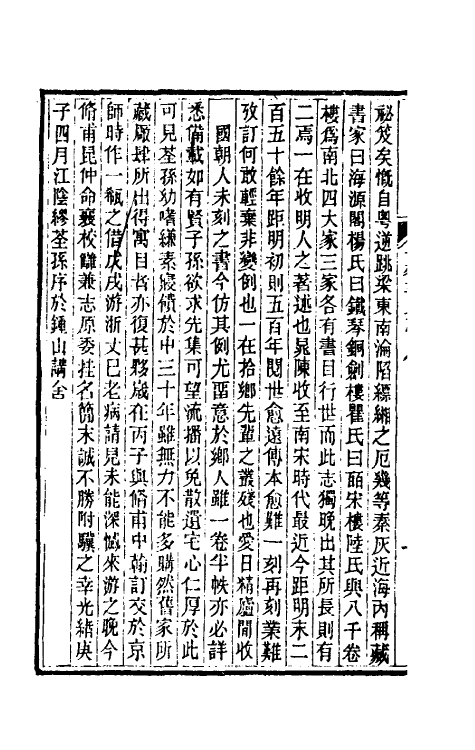 祕笈矣慨自粵逆跳梁東南淪陷縹緗之厄幾等秦灰近海內稱藏
書家曰海源閣楊氏曰鐵琴銅劍樓瞿氏曰皕宋樓陸氏與八千卷
樓爲南北四大家三家各有書目行世而此志獨晚出其所長則有
二焉一在收明人之著述也晁陳收至南宋時代最近今距明末二
百五十餘年距明初則五百年閱世愈遠傳本愈難一刻再刻業難
攷訂何敢輕棄非變例也一在拾鄉先輩之叢殘也愛日精廬間收
國朝人未刻之書今仿其例尤畱意於鄉人雖一卷半帙亦必詳
悉備載如有賢子孫欲求先集可望流播以免散還宅心仁厚於此
可見荃孫幼嗜縑素寢饋於中三十年雖無力不能多購然舊家所
藏廠肆所出得寓目者亦復甚夥歲在丙子與脩甫中翰訂交於京
師時作一瓻之借戊戌游浙丈已老病請見未能深憾來游之晚今
脩甫昆仲命襄校讎兼志原委挂名簡末誠不勝附驥之幸光緒庚
子四月江陰繆荃孫序於鍾山講舍